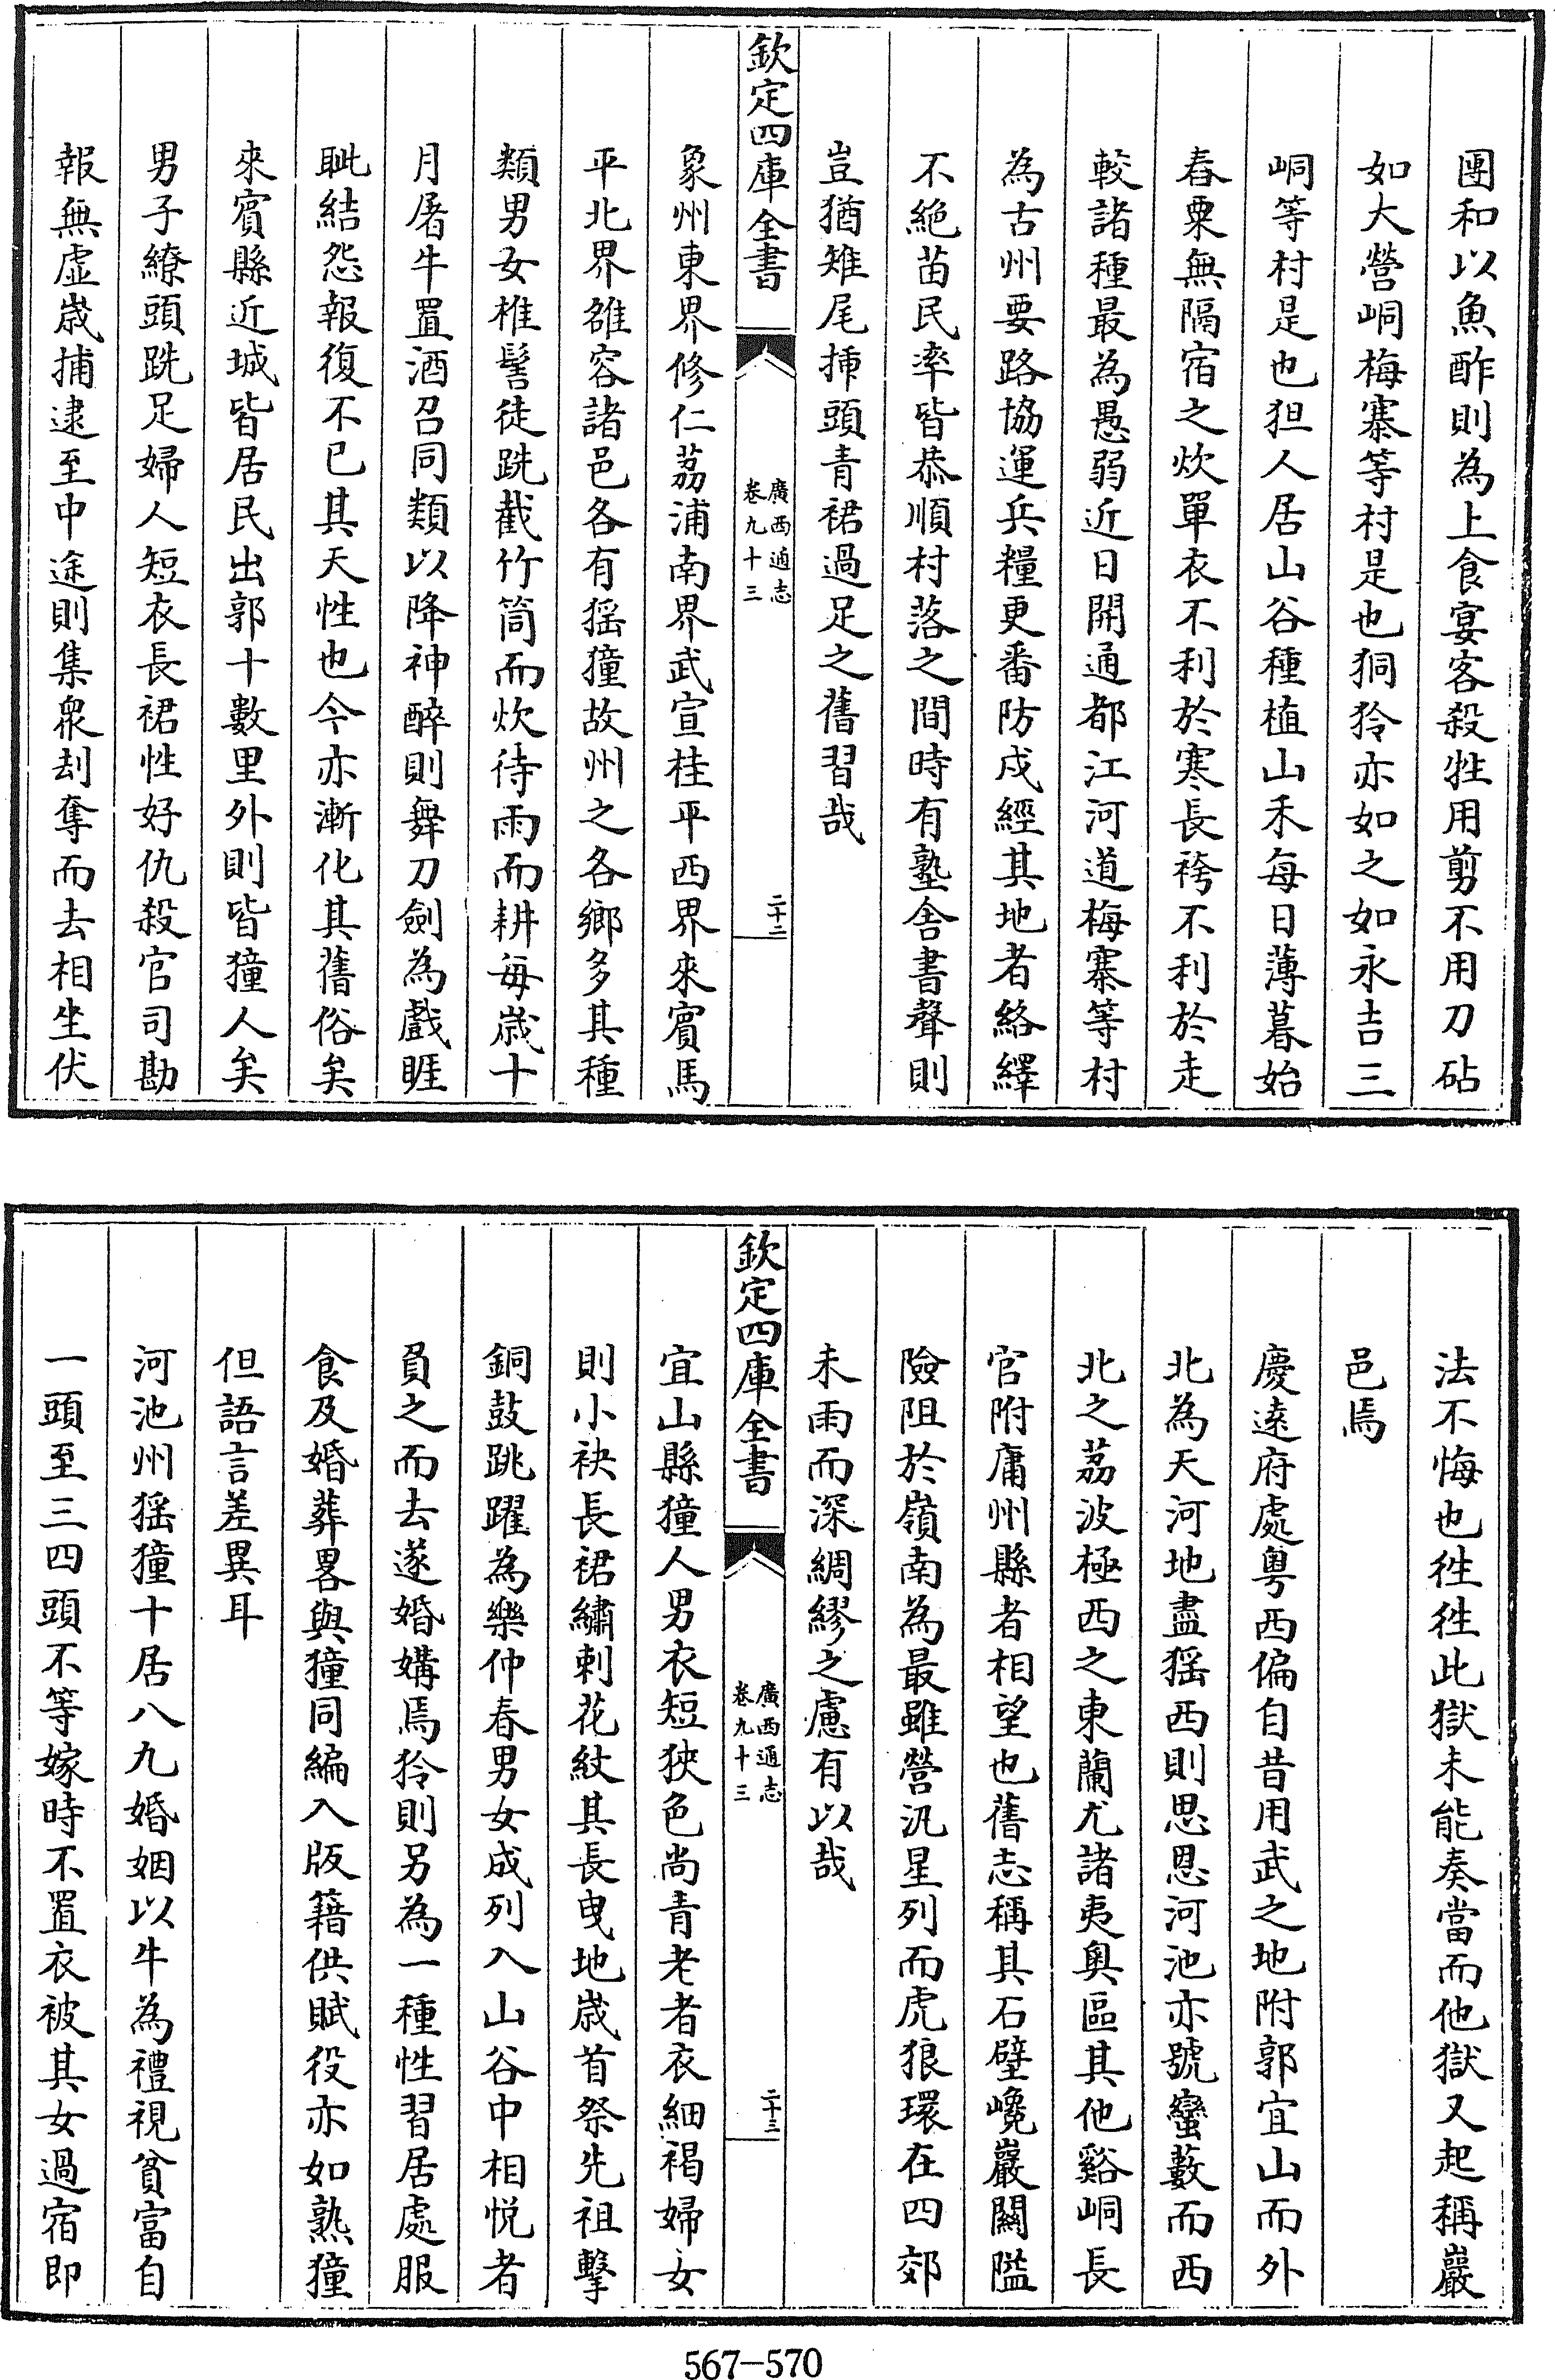 團和以魚酢則為上食宴客殺牲用剪不用刀砧
如大營峒梅寨等村是也狪狑亦如之如永吉三
峒等村是也狚人居山谷種植山禾每日薄暮始
舂粟無隔宿之炊單衣不利於寒長袴不利於走
較諸種最為愚弱近日開通都江河道梅寨等村
為古州要路協運兵糧更番防戍經其地者絡繹
不絶苗民率皆恭順村落之間時有塾舍書聲則
豈猶雉尾揷頭青裙過足之舊習哉
欽定四庫全書
廣西通志
卷九十三
二十二
象州東界修仁荔浦南界武宣桂平西界來賓馬
平北界雒容諸邑各有猺獞故州之各鄉多其種
類男女椎髻徒跣截竹筒而炊待雨而耕每歲十
月屠牛置酒召同類以降神醉則舞刀劍為戲睚
眦結怨報復不已其天性也今亦漸化其舊俗矣
來賓縣近城皆居民出郭十數里外則皆獞人矣
男子繚頭跣足婦人短衣長裙性好仇殺官司勘
報無虛歲捕逮至中途則集衆刦奪而去相坐伏
法不悔也徃徃此獄未能奏當而他獄又起稱巖
邑焉
慶逺府處粵西偏自昔用武之地附郭宜山而外
北為天河地盡猺西則思恩河池亦號蠻藪而西
北之荔波極西之東蘭尤諸夷奥區其他谿峒長
官附庸州縣者相望也舊志稱其石壁巉巖闗隘
險阻於嶺南為最雖營汛星列而虎狼環在四郊
未雨而深綢繆之慮有以哉
欽定四庫全書
廣西通志
卷九十三
二十三
宜山縣獞人男衣短狹色尚青老者衣細褐婦女
則小袂長裙繡刺花紋其長曳地歲首祭先祖擊
銅鼓跳躍為樂仲春男女成列入山谷中相悅者
負之而去遂婚媾焉狑則另為一種性習居處服
食及婚葬畧與獞同編入版籍供賦役亦如熟獞
但語言差異耳
河池州猺獞十居八九婚姻以牛為禮視貧富自
一頭至三四頭不等嫁時不置衣被其女過宿即
567-570